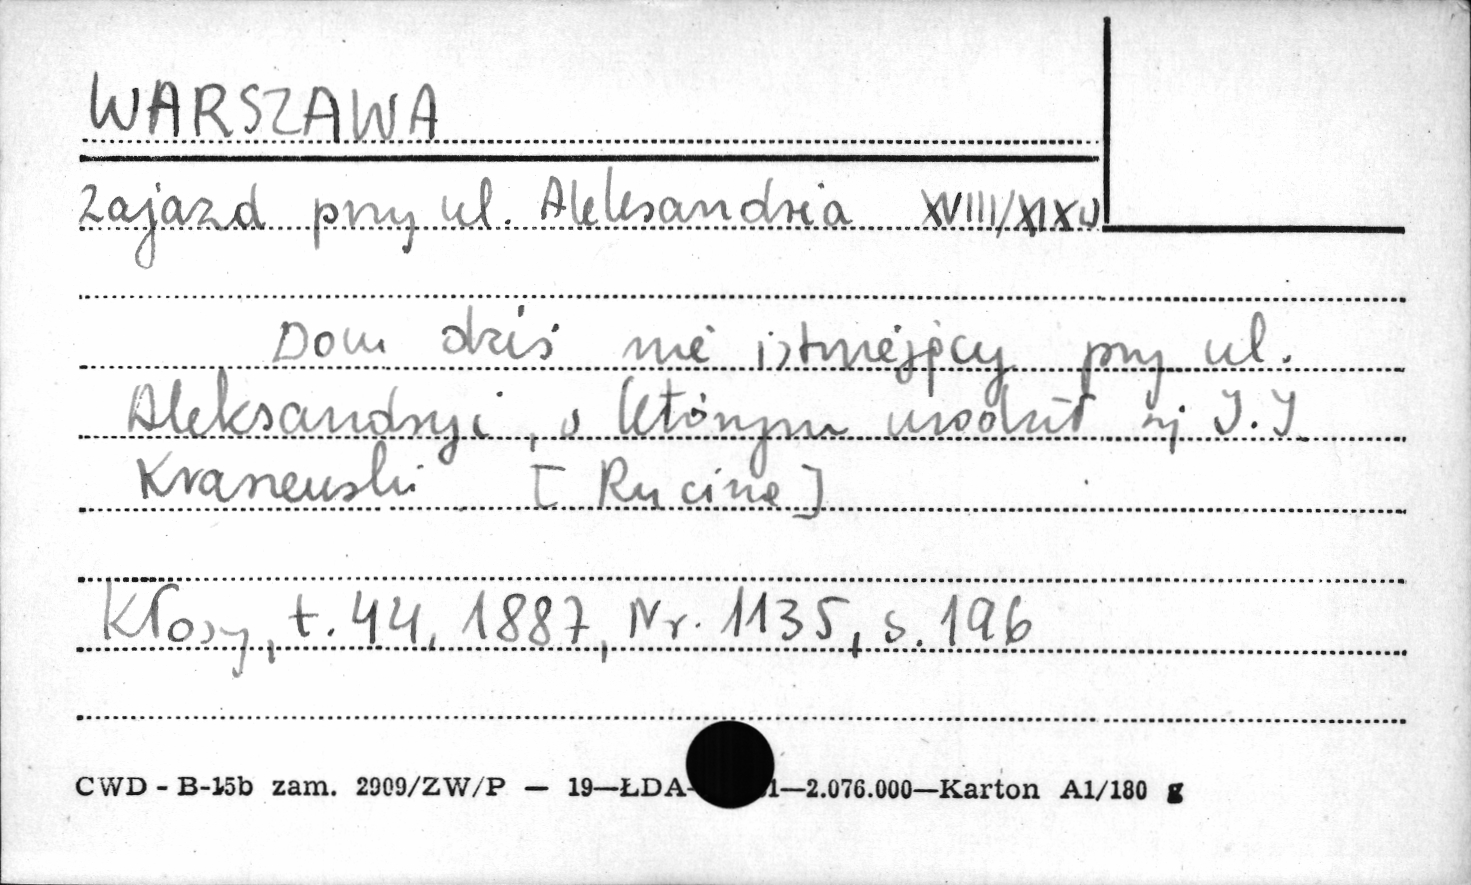 WARSZAWA
Zajazd przy ul. Aleksandria XVIII/XIX w
Dom dziś nie istniejący przy ul.
Aleksandryi, w którym urodził się J. I.
Kraszewski [Rycina]
Kłosy, t. 44, 1887, Nr. 1135, s. 196
CWD - B-15b zam. 2909/ZW/P — 19—ŁDA- 1—2.076.000—Karton A1/180 g